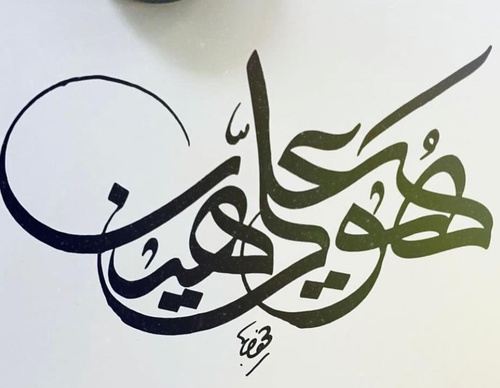 هو عليّ هين